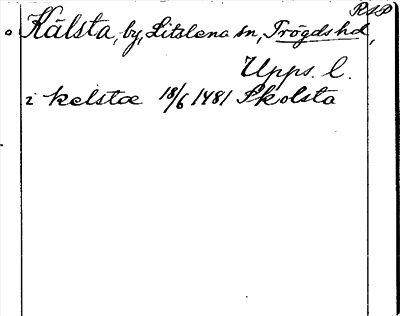 RSP
Kälsta, by, Litslena sn, Trögds hd,
Upps. l.
i kelstæ 18/6 1481 Skolsta